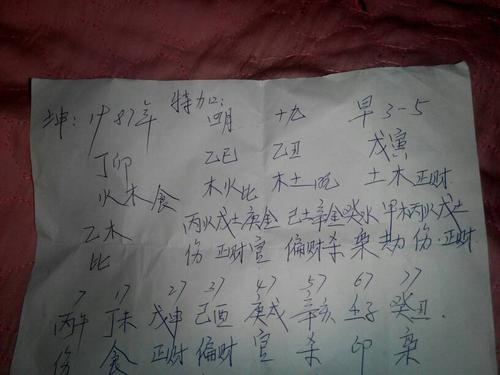 坤: 1987年 特加: 四月 十九 早3-5
丁卯 乙巳 乙丑 戊寅
火木食 木火比 木土 土木正财
乙木 丙火戊土庚金 己土辛金癸水 甲木丙火戊土
比 伤 正财官 偏财杀枭 劫 伤·正财
7 17 27 37 47 57 67 77
丙午 丁未 戊申 己酉 庚戌 辛亥 壬子 癸丑.
伤 食 正财 偏财 官 杀 印 枭